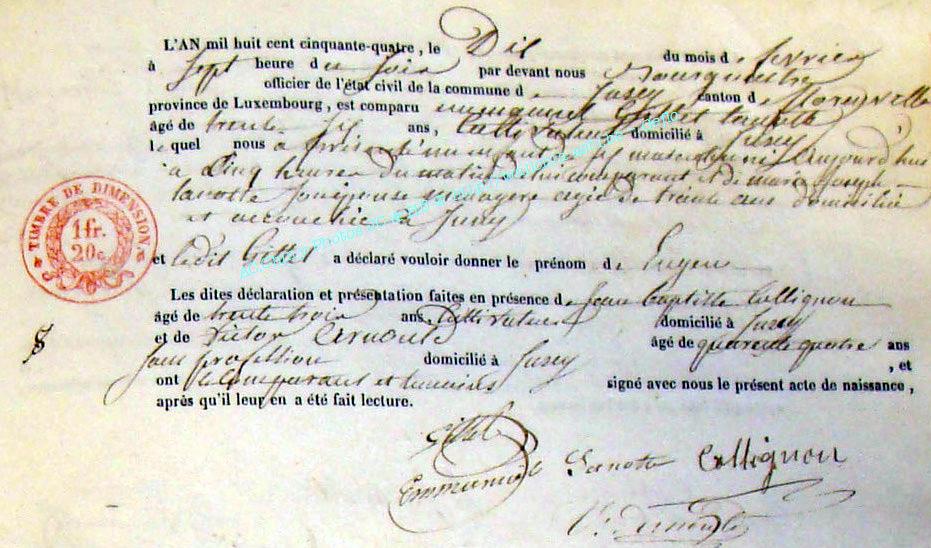 L'AN mil huit cent cinquante-quatre, le Dix du mois de février
à Sept heure du Soir par devant nous Bourgmestre
officier de l'état civil de la commune de Jusey canton de
province de Luxembourg, est comparu Emmanuel Gillet
âgé de trente six ans, Cultivateur domicilié à Jusey
lequel nous a présenté un enfant du sexe masculin né aujourd'hui
à Cinq heures du matin de lui comparant et de marie Joseph
lanotte Son épouse menagere agée de trente ans domiciliée
et accouchée à Jusey
TIMBRE DE DIMENSION
1 fr.
20 c.
et ledit Gillet a déclaré vouloir donner le prénom de Eugene
Les dites déclaration et présentation faites en présence de Jean Baptiste Collignon
âgé de trente trois ans, Cultivateur domicilié à Jusey
et de Victor âgé de quarente quatre ans
Sans profession domicilié à Jusey , et
ont le Comparant et temoins signé avec nous le présent acte de naissance,
après qu'il leur en a été fait lecture.
Gillet
Emmanuel Collignon